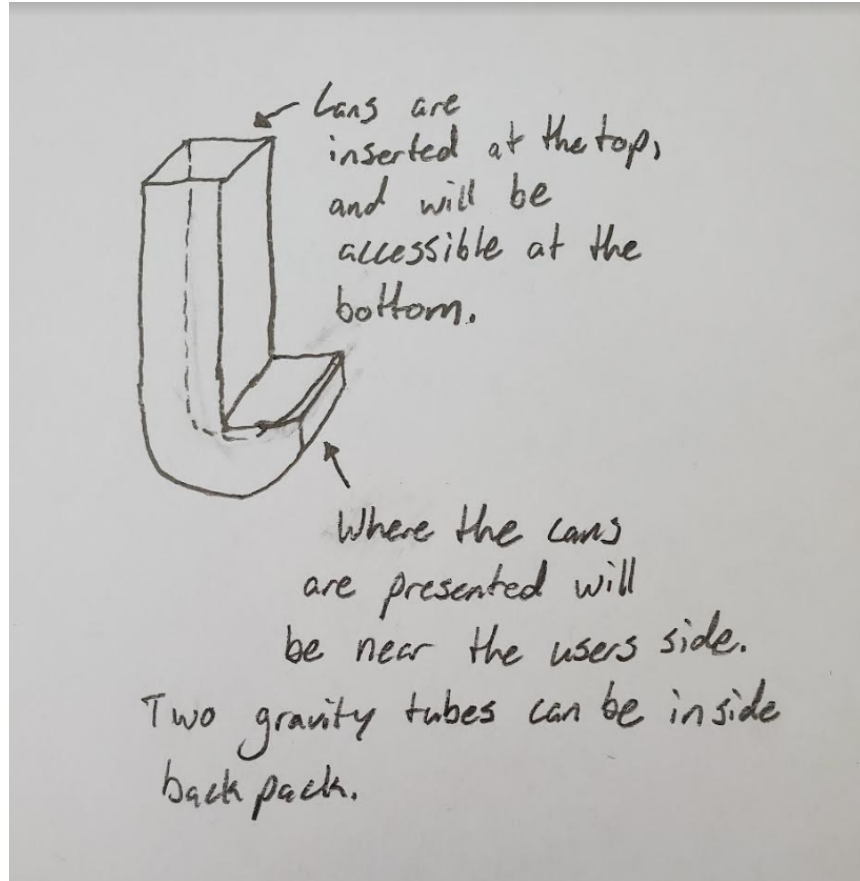 Cans are
inserted at the top,
and will be
accessible at the
bottom.
Where the cans
are presented will
be near the users side.
Two gravity tubes can be inside
back pack.